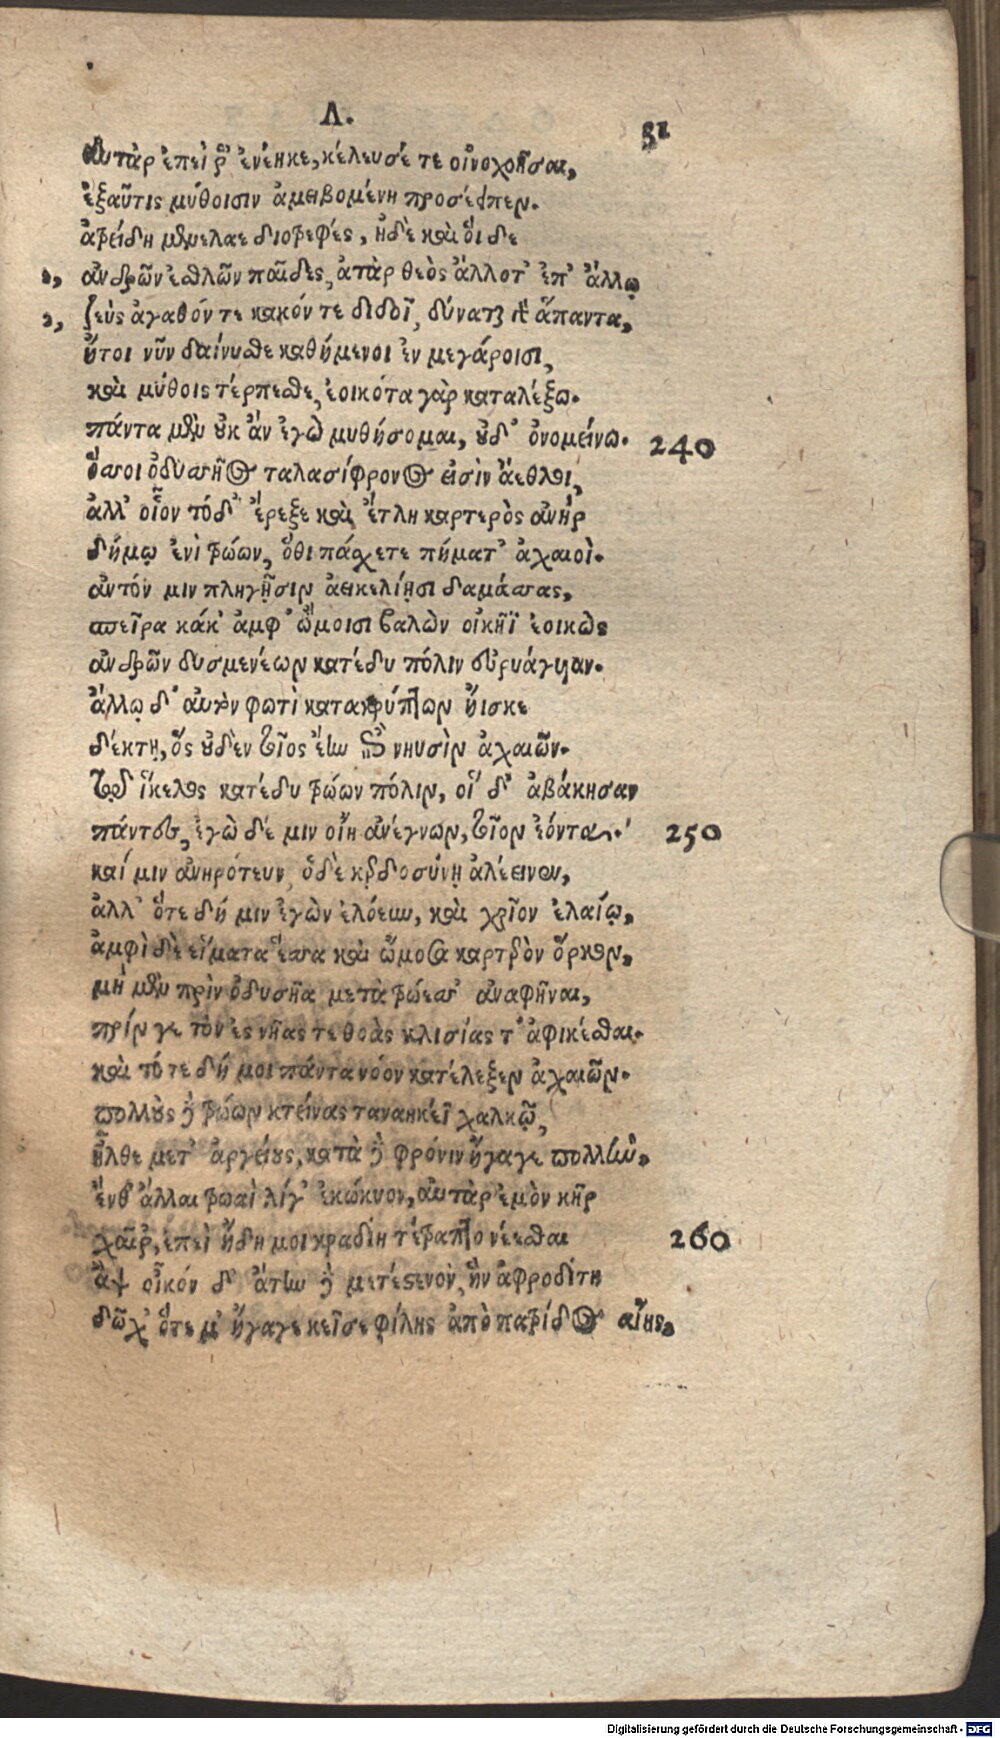 Δ.
51
αὐτὰρ ἐπεί ῥ' ἐνέηκε, κέλευσέ τε οἰνοχοῆσαι,
ἐξαῦτις μύθοισιν ἀμειβομένη προσέειπεν.
ἀτρείδη μενέλαε διοτρεφὲς, ἠδὲ καὶ οἵδε
ἀνδρῶν ἐσθλῶν παῖδες, ἀτὰρ θεὸς ἄλλοτ' ἐπ' ἄλλῳ
ζεὺς ἀγαθόν τε κακόν τε διδοῖ, δύναται γὰρ ἅπαντα,
ἤτοι νῦν δαίνυσθε καθήμενοι ἐν μεγάροισι,
καὶ μύθοις τέρπεσθε, ἐοικότα γὰρ καταλέξω.
πάντα μὲν οὐκ ἂν ἐγὼ μυθήσομαι, οὐδ' ὀνομείνω.
240
ὅσσοι ὀδυσσῆος ταλασίφρονος εἰσὶν ἄεθλοι,
ἀλλ' οἷον τόδ' ἔρεξε καὶ ἔτλη καρτερὸς ἀνὴρ
δήμῳ ἐνὶ τρώων, ὅθι πάσχετε πήματ' ἀχαιοὶ.
αὐτόν μιν πληγῇσιν ἀεικελίῃσι δαμάσσας,
σπεῖρα κάκ' ἀμφ' ὤμοισι βαλὼν οἰκῆϊ ἐοικὼς
ἀνδρῶν δυσμενέων κατέδυ πόλιν εὐρυάγυιαν.
ἄλλῳ δ' αὐτὸν φωτὶ κατακρύπτων ἤισκε
δέκτῃ, ὃς οὐδὲν τοῖος ἔην ἐπὶ νηυσὶν ἀχαιῶν.
τῷ ἴκελος κατέδυ τρώων πόλιν, οἱ δ' ἀβάκησαν
πάντες, ἐγὼ δέ μιν οἴη ἀνέγνων, τοῖον ἐόντα.
250
καί μιν ἀνηρότευν, ὁ δὲ κερδοσύνῃ ἀλέεινεν,
ἀλλ' ὅτε δή μιν ἐγὼν ἐλόευν, καὶ χρῖον ἐλαίῳ,
ἀμφὶ δὲ εἵματα ἕσσα καὶ ὤμοσα καρτερὸν ὅρκον,
μὴ μὲν πρὶν ὀδυσῆα μετὰ τρώεσσ' ἀναφῆναι,
πρίν γε τὸν ἐς νῆας τε θοὰς κλισίας τ' ἀφικέσθαι.
καὶ τότε δή μοι πάντα νόον κατέλεξεν ἀχαιῶν.
πολλοὺς δὲ τρώων κτείνας ταναηκέϊ χαλκῷ,
ἦλθε μετ' ἀργείους, κατὰ δὲ φρόνιν ἤγαγε πολλήν.
ἔνθ' ἄλλαι τρωαὶ λίγ' ἐκώκυον, αὐτὰρ ἐμὸν κῆρ
χαῖρ', ἐπεὶ ἤδη μοι κραδίη τέτραπτο νέεσθαι
260
ἂψ οἶκόν δ' ἄτην δὲ μετέστενον, ἣν ἀφροδίτη
δῶχ' ὅτε μ' ἤγαγε κεῖσε φίλης ἀπὸ πατρίδος αἴης,
Digitalisierung gefördert durch die Deutsche Forschungsgemeinschaft - DFG